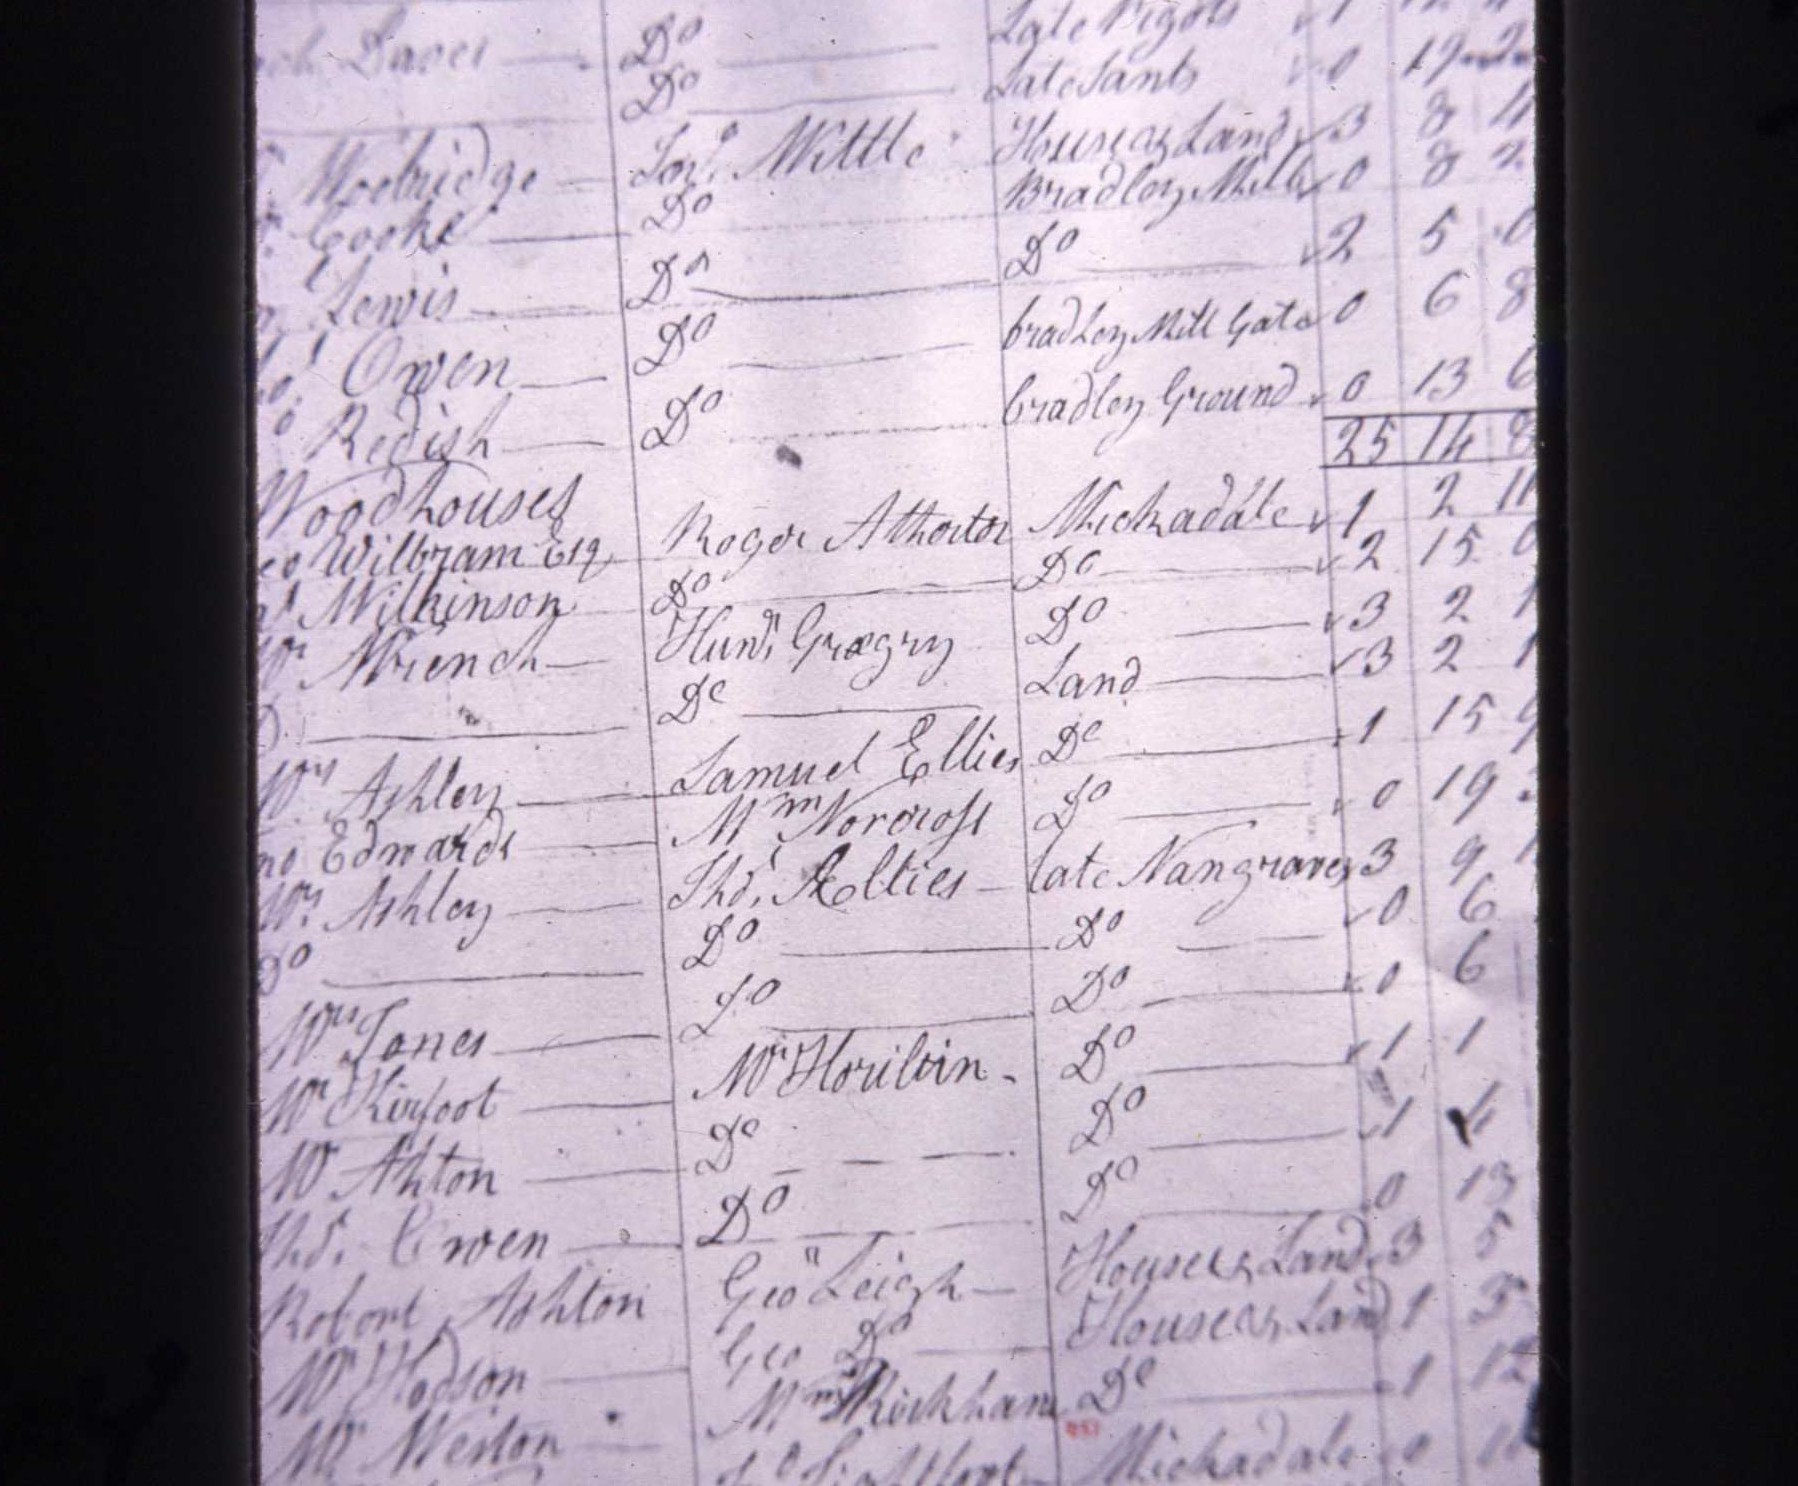 Do Late Pigots 1
Do Late Sants 0 19 2
Do
Woebridge Jos. Wittle House & Land 3 8 4
Cooke Do Bradley Mill 0 8 2
Lewis Do Do 2 5 0
Owen Do bradley Mill Gate 0 6 8
Redish Do bradley Ground 0 13 6
25 14 8
Woodhouses
Wilbram Esq Roger Atherton Mickadale 1 2 11
Wilkinson Do Do 2 15 0
Mr Wrench Hum. Gregry Do 3 2 1
Do Do Land 3 2 1
Mrs Ashley Samuel Ellies Do 1 15 9
Edwards Wm Norcross Do 0 19
Mrs Ashley Tho. Ellies late Nangraves 3 9 1
Do Do Do 0 6
Mrs Jones Do Do 0 6
Mr Kirfoot Mr Do 1 1
Mr Ahton Do Do 1 4
Tho. Owen Do Do 0 13
Robert Ashton Geo Leigh House & Land 3 5
Mr Hodson Geo Do House & Land 1 3
Mr Weston Wm Do 1 12
Mickadale 0